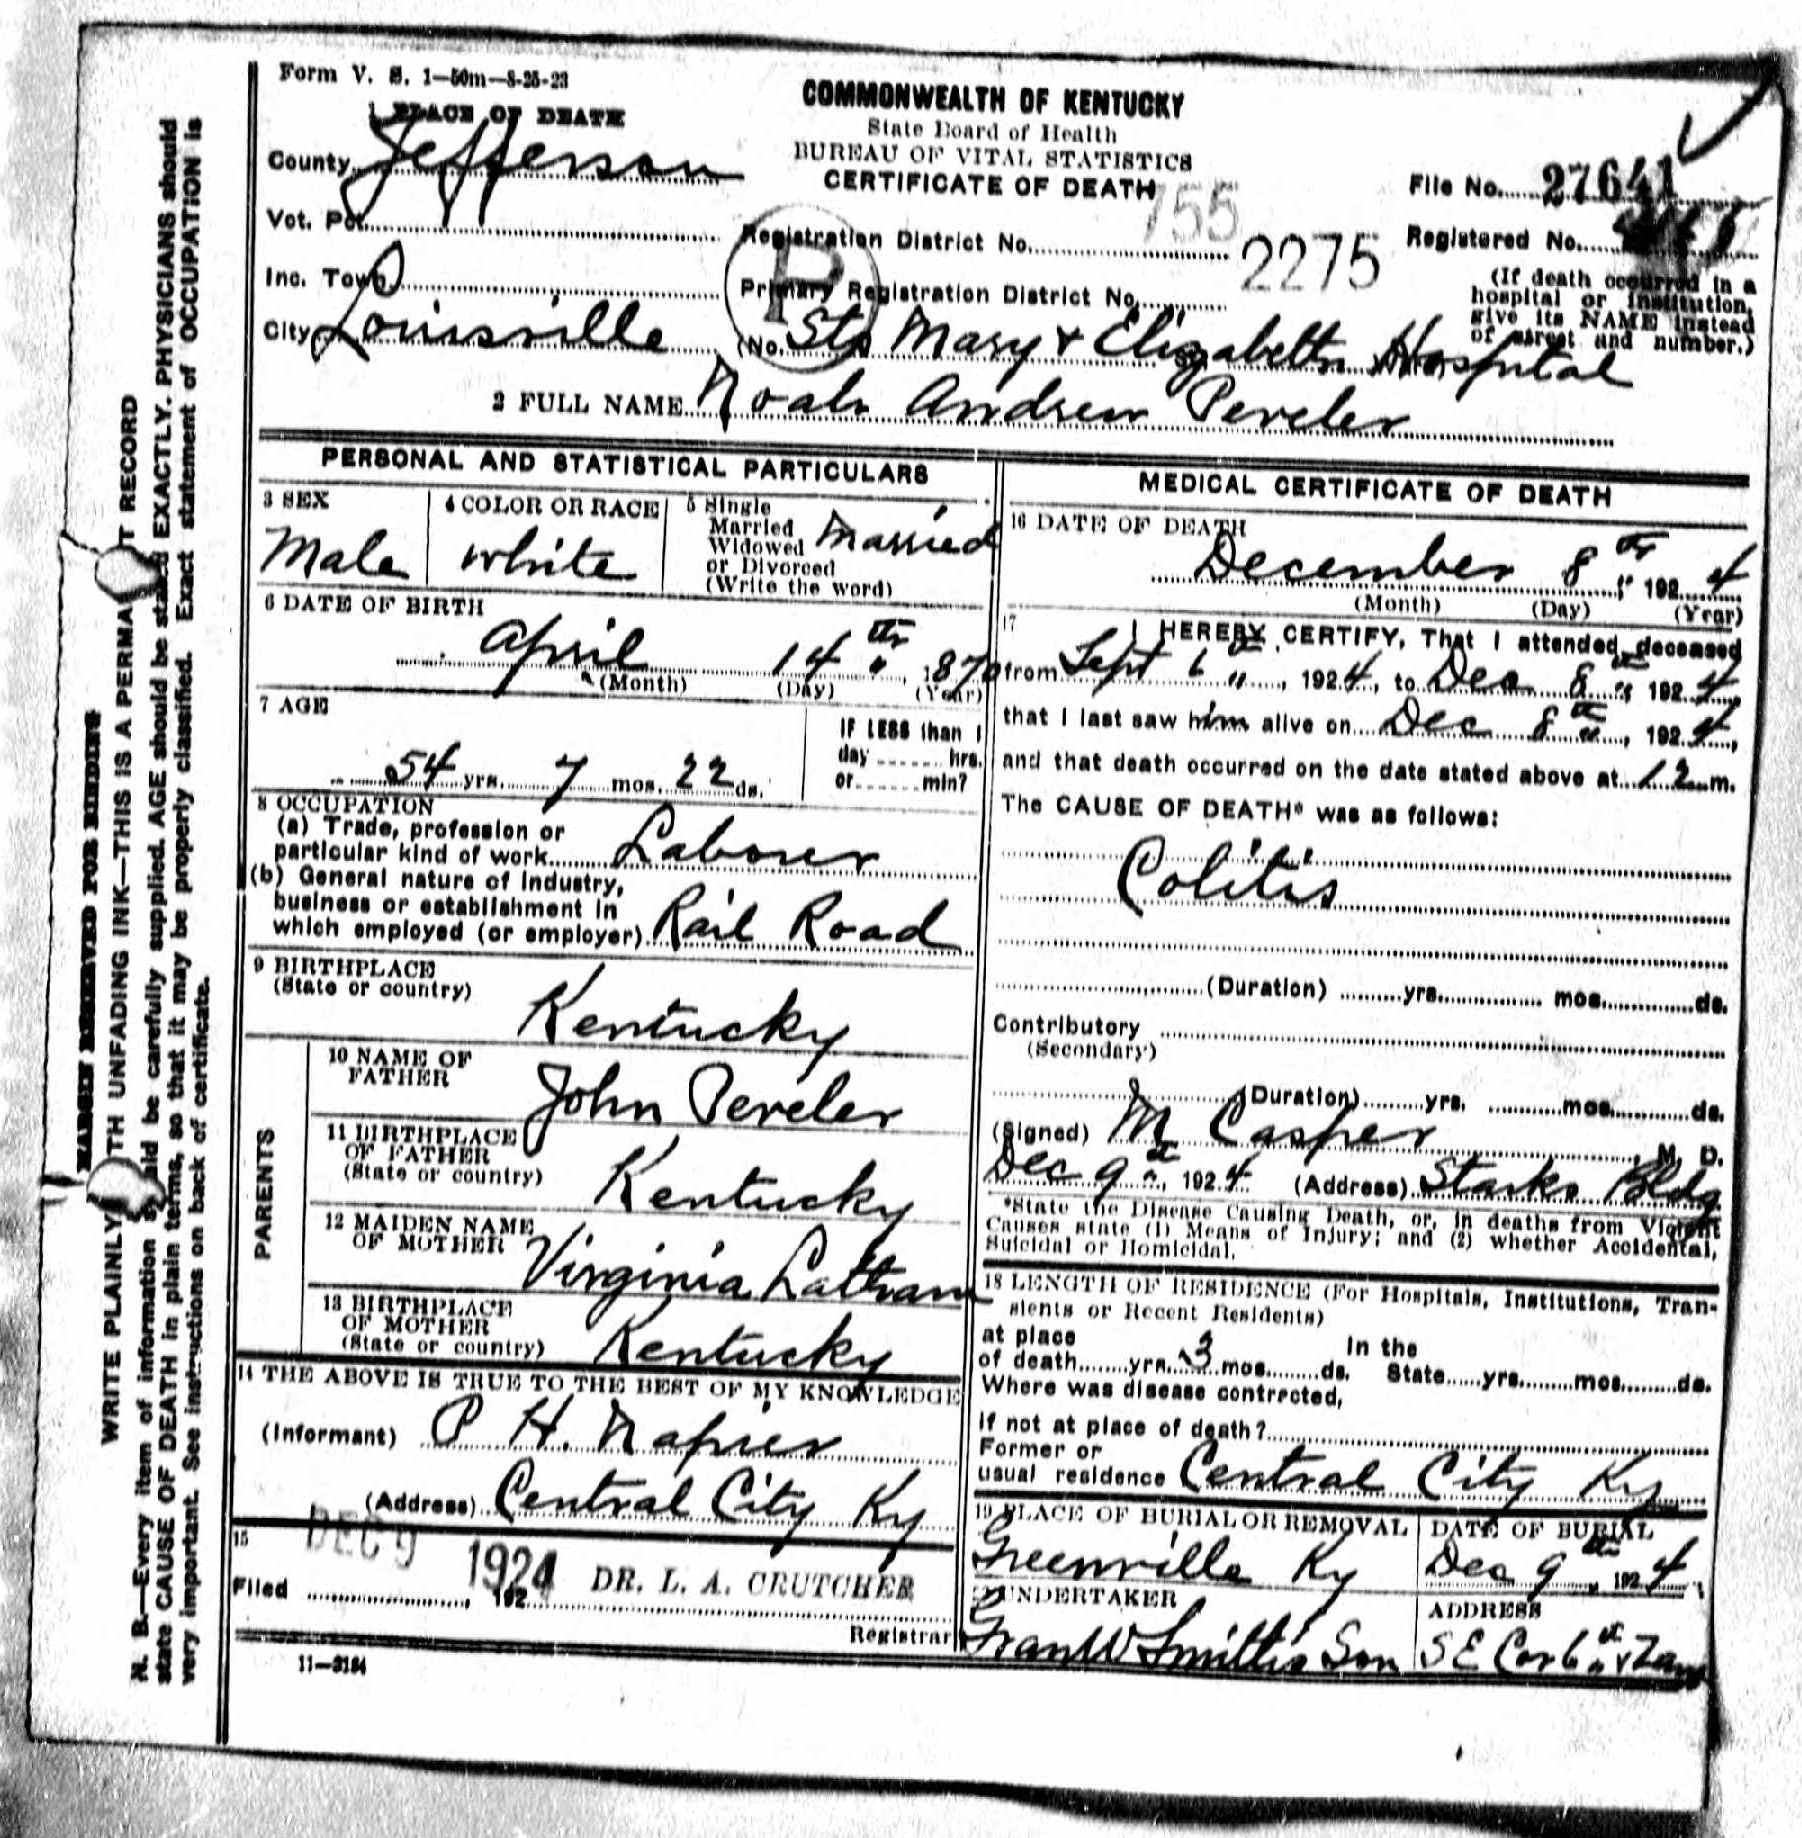 Form V. S. 1—50m—8-25-23
COMMONWEALTH OF KENTUCKY
State Board of Health
BUREAU OF VITAL STATISTICS
CERTIFICATE OF DEATH
1 PLACE OF DEATH
County Jefferson
Vot. Pct.
Inc. Town
City Louisville
File No. 27641
Registration District No. 755
Registered No.
Primary Registration District No. 2275
P
(If death occurred in a
hospital or institution,
give its NAME instead
of street and number.)
(No. Sts Mary & Elizabeth Hospital
2 FULL NAME Noah Andrew Pereler
PERSONAL AND STATISTICAL PARTICULARS
3 SEX
Male
4 COLOR OR RACE
White
5 Single
Married
Widowed
or Divorced
(Write the word)
Married
6 DATE OF BIRTH
April 14th, 1870
(Month) (Day) (Year)
7 AGE
54 yrs. 7 mos. 22 ds.
IF LESS than 1
day ...... hrs.
or ...... min?
8 OCCUPATION
(a) Trade, profession or
particular kind of work Laborer
(b) General nature of industry,
business or establishment in
which employed (or employer) Rail Road
9 BIRTHPLACE
(State or country)
Kentucky
PARENTS
10 NAME OF
FATHER
John Pereler
11 BIRTHPLACE
OF FATHER
(State or country)
Kentucky
12 MAIDEN NAME
OF MOTHER
Virginia Latham
13 BIRTHPLACE
OF MOTHER
(State or country)
Kentucky
14 THE ABOVE IS TRUE TO THE BEST OF MY KNOWLEDGE
(Informant) P H. Napier
(Address) Central City Ky
15
Filed DEC 9 1924, 192 DR. L. A. CRUTCHER
Registrar
11—3184
MEDICAL CERTIFICATE OF DEATH
16 DATE OF DEATH
December 8th, 1924
(Month) (Day) (Year)
17 I HEREBY CERTIFY, That I attended deceased
from Sept 6th, 1924, to Dec 8th, 1924,
that I last saw him alive on Dec 8th, 1924,
and that death occurred on the date stated above at 12 m.
The CAUSE OF DEATH* was as follows:
Colitis
(Duration) yrs. mos. ds.
Contributory
(Secondary)
(Duration) yrs. mos. ds.
(Signed) M Casper, M. D.
Dec 9th, 1924 (Address) Starks Bldg
*State the Disease Causing Death, or, in deaths from Violent
Causes state (1) Means of Injury; and (2) whether Accidental,
Suicidal or Homicidal.
18 LENGTH OF RESIDENCE (For Hospitals, Institutions, Tran-
sients or Recent Residents)
at place In the
of death yrs. 3 mos. ds. State yrs. mos. ds.
Where was disease contrrcted,
if not at place of death?
Former or
usual residence Central City Ky
19 PLACE OF BURIAL OR REMOVAL
Greenville Ky
DATE OF BURIAL
Dec 9th, 1924
UNDERTAKER
Smith's Son
ADDRESS
S E Cor 6th &
MARGIN RESERVED FOR BINDING
WRITE PLAINLY TH UNFADING INK—THIS IS A PERMA T RECORD
N. B.—Every item of information ld be carefully supplied. AGE should be stated EXACTLY. PHYSICIANS should
state CAUSE OF DEATH in plain terms, so that it may be properly classified. Exact statement of OCCUPATION is
very important. See instructions on back of certificate.